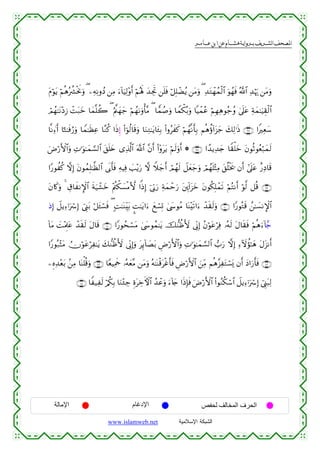 المصحف الشريف برواية هشام عن ابن عامر
وَمَن يَهْدِ ٱللَّهُ فَهُوَ ٱلْمُهْتَدِ ۖ وَمَن يُضْلِلْ فَلَن تَجِدَ لَهُمْ أَوْلِيَآءَ مِن دُونِهِۦ ۖ وَنَحْشُرُهُمْ يَوْمَ
ٱلْقِيَٰمَةِ عَلَىٰ وُجُوهِهِمْ عُمْيًا وَبُكْمًا وَصُمًّا ۖ مَّأْوَىٰهُمْ جَهَنَّمُ ۖ كُلَّمَا خَبَتْ زِدْنَٰهُمْ
سَعِيرًا ۝ ذَٰلِكَ جَزَآؤُهُم بِأَنَّهُمْ كَفَرُوا۟ بِـَٔايَٰتِنَا وَقَالُوٓا۟ إِذَا كُنَّا عِظَٰمًا وَرُفَٰتًا أَءِنَّا
لَمَبْعُوثُونَ خَلْقًا جَدِيدًا ۝ ۞ أَوَلَمْ يَرَوْا۟ أَنَّ ٱللَّهَ ٱلَّذِى خَلَقَ ٱلسَّمَٰوَٰتِ وَٱلْأَرْضَ
قَادِرٌ عَلَىٰٓ أَن يَخْلُقَ مِثْلَهُمْ وَجَعَلَ لَهُمْ أَجَلًا لَّا رَيْبَ فِيهِ فَأَبَى ٱلظَّٰلِمُونَ إِلَّا كُفُورًا
۝ قُل لَّوْ أَنتُمْ تَمْلِكُونَ خَزَآئِنَ رَحْمَةِ رَبِّىٓ إِذًا لَّأَمْسَكْتُمْ خَشْيَةَ ٱلْإِنفَاقِ ۚ وَكَانَ
ٱلْإِنسَٰنُ قَتُورًا ۝ وَلَقَدْ ءَاتَيْنَا مُوسَىٰ تِسْعَ ءَايَٰتٍۭ بَيِّنَٰتٍ ۖ فَسْـَٔلْ بَنِىٓ إِسْرَٰٓءِيلَ إِذ
جَّآءَهُمْ فَقَالَ لَهُۥ فِرْعَوْنُ إِنِّى لَأَظُنُّكَ يَٰمُوسَىٰ مَسْحُورًا ۝ قَالَ لَقَدْ عَلِمْتَ مَآ
أَنزَلَ هَٰٓؤُلَآءِ إِلَّا رَبُّ ٱلسَّمَٰوَٰتِ وَٱلْأَرْضِ بَصَآئِرَ وَإِنِّى لَأَظُنُّكَ يَٰفِرْعَوْنُ مَثْبُورًا
۝ فَأَرَادَ أَن يَسْتَفِزَّهُم مِّنَ ٱلْأَرْضِ فَأَغْرَقْنَٰهُ وَمَن مَّعَهُۥ جَمِيعًا ۝ وَقُلْنَا مِنۢ بَعْدِهِۦ
لِبَنِىٓ إِسْرَٰٓءِيلَ ٱسْكُنُوا۟ ٱلْأَرْضَ فَإِذَا جَآءَ وَعْدُ ٱلْـَٔاخِرَةِ جِئْنَا بِكُمْ لَفِيفًا ۝
الحرف المخالف لحفص الإدغام الإمالة
الشبكة الإسلامية www.islamweb.net